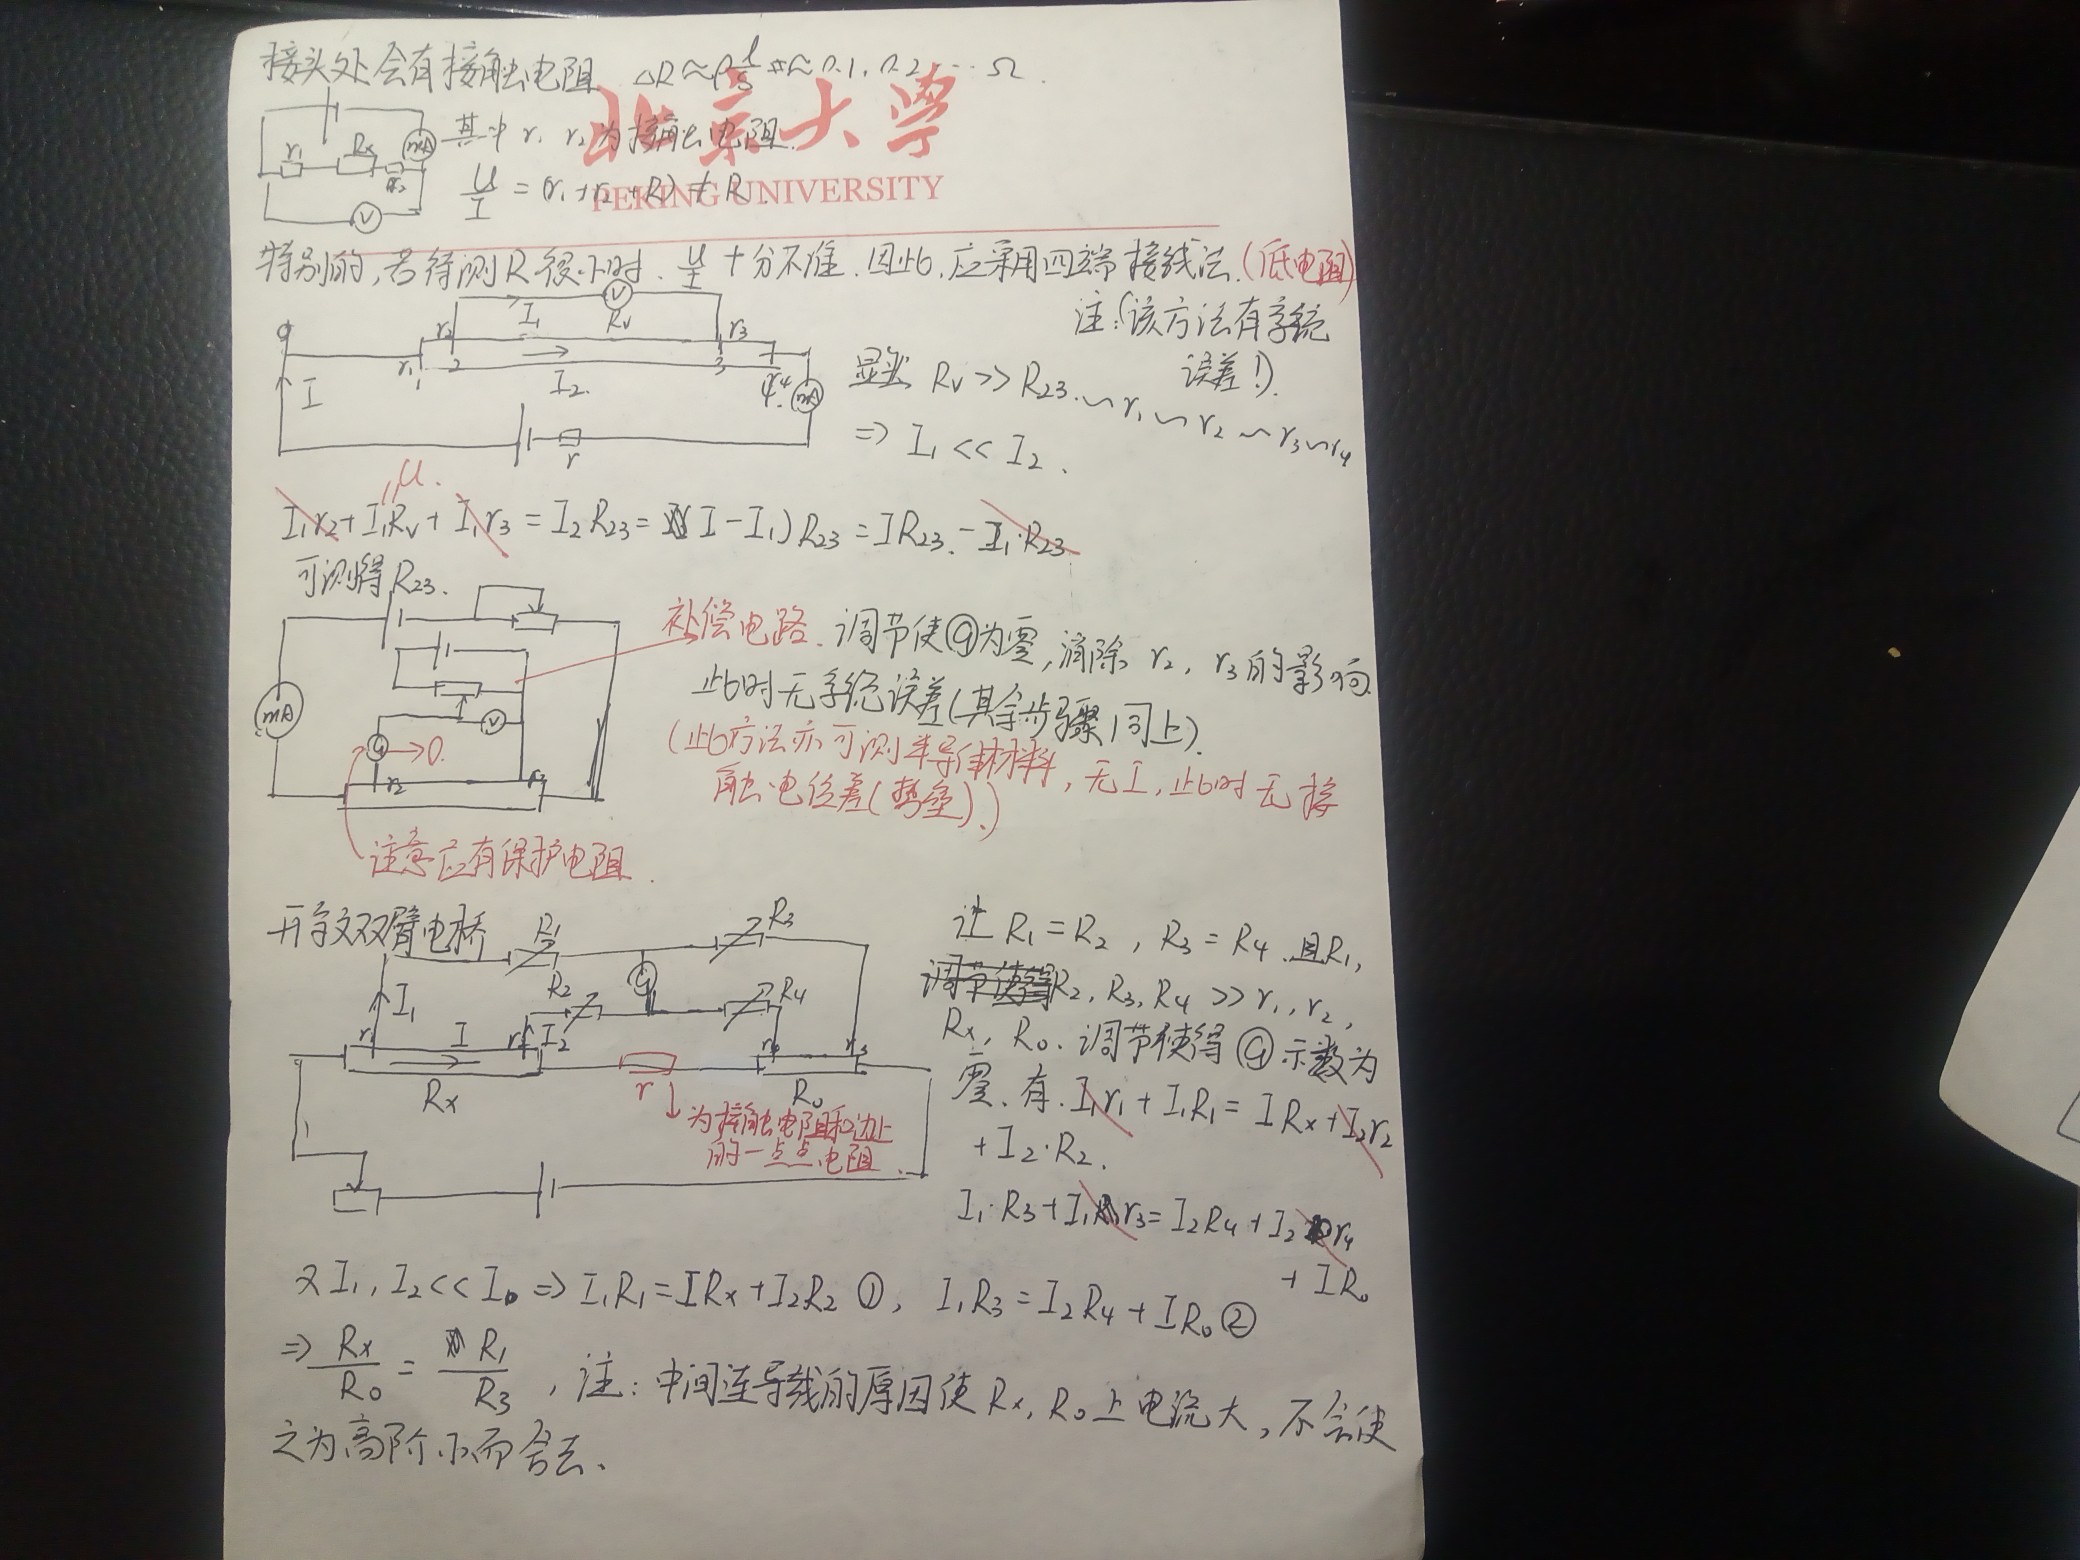 接头处会有接触电阻 △R≈ρl/s≈0.1, 0.2, … Ω.
北京大学
PEKING UNIVERSITY
r₁ Rx r₂ mA V
其中 r₁ r₂ 为接触电阻.
U/I = (r₁+r₂+R) ≠ R.
特别的, 若待测R很小时. U/I 十分不准. 因此, 应采用四端接线法. (低电阻)
注: (该方法有系统
误差!).
I₁ V Rv
r₂ r₃
r₁ 1 2 3 r₄ 4.
I I₂. mA
r
显然 Rv >> R₂₃. ~r₁ ~ r₂ ~ r₃ ~ r₄
=> I₁ << I₂.
U.
I₁r₂ + I₁Rv + I₁r₃ = I₂R₂₃ = (I-I₁)R₂₃ = IR₂₃. - I₁·R₂₃
可测得 R₂₃.
mA V G →0. r₂ r₃
补偿电路. 调节使G为零, 消除 r₂, r₃的影响.
此时无系统误差(其余步骤同上).
(此方法亦可测半导体材料, 无I, 此时无接
触电位差(势垒).)
注意应有保护电阻.
开尔文双臂电桥
R₁ R₃
R₂ G R₄
I₁ I I₂
r₁ r₂ r₄ r₃
Rx r R₀
为接触电阻和边上
的一点点电阻.
让 R₁=R₂, R₃=R₄. 且R₁,
调节使得R₂, R₃, R₄ >> r₁, r₂,
Rx, R₀. 调节使得G示数为
零. 有. I₁r₁ + I₁R₁ = IRx + I₂r₂
+ I₂·R₂.
I₁·R₃ + I₁r₃ = I₂R₄ + I₂r₄
+ IR₀
又 I₁, I₂ << I => I₁R₁ = IRx + I₂R₂ ①, I₁R₃ = I₂R₄ + IR₀ ②
=> Rx/R₀ = R₁/R₃, 注: 中间连导线的原因使 Rx, R₀上电流大, 不会使
之为高阶小而舍去.